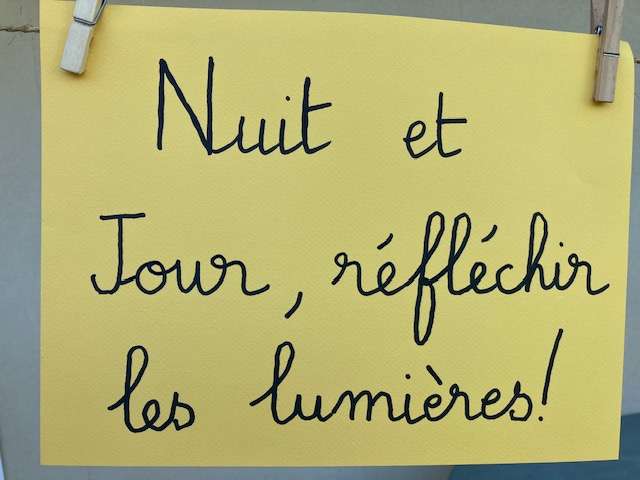 Nuit et
Jour, réfléchir
les lumières!